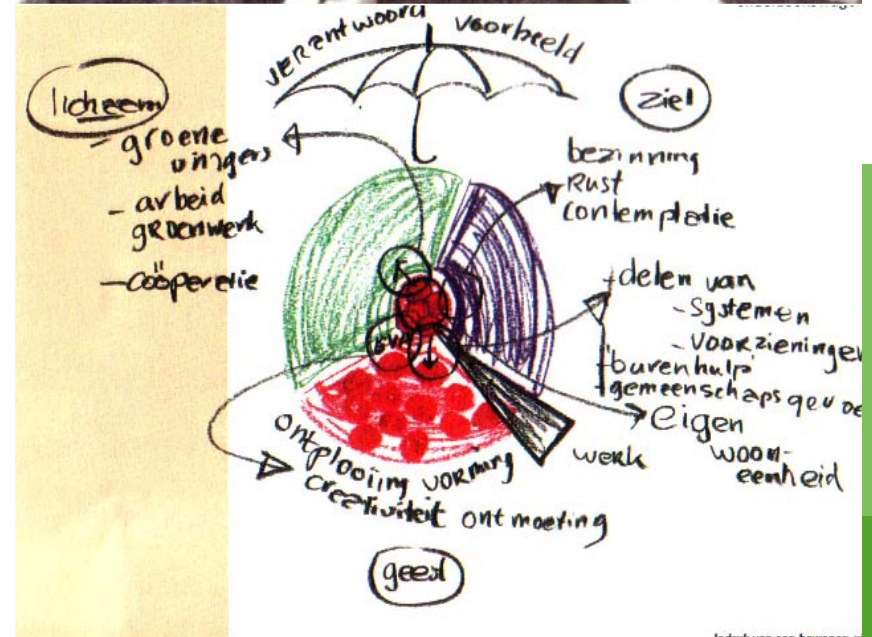 verantwoord voorbeeld
licheem
- groene
vingers
- arbeid
groenwerk
- coöperetie
ziel
bezinning
Rust
contemplatie
delen van
- Systemen
- Voorzieningen
burenhulp
gemeenschapsgevoe
eigen
woon-
eenheid
werk
ontplooiing vorming
creativiteit ontmoeting
geest